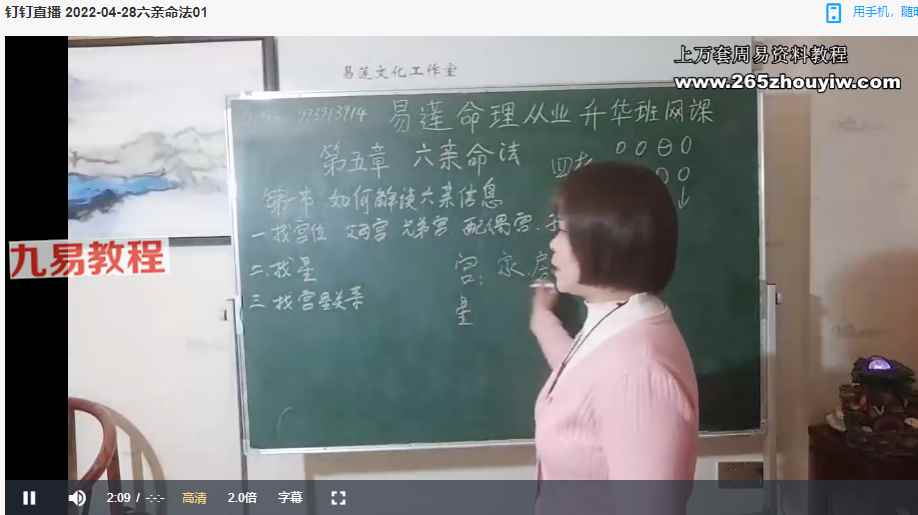 钉钉直播 2022-04-28六亲命法01
用手机，随时
上万套周易资料教程
www.265zhouyiw.com
易莲文化工作室
易莲命理从业升华班网课
第五章 六亲命法
第一节 如何解读六亲信息
一.找宫位 父母宫 兄弟宫 配偶宫、
二.找星
宫：家
三.找宫星关系
星
九易教程
2:09 / -:-:- 高清 2.0倍 字幕